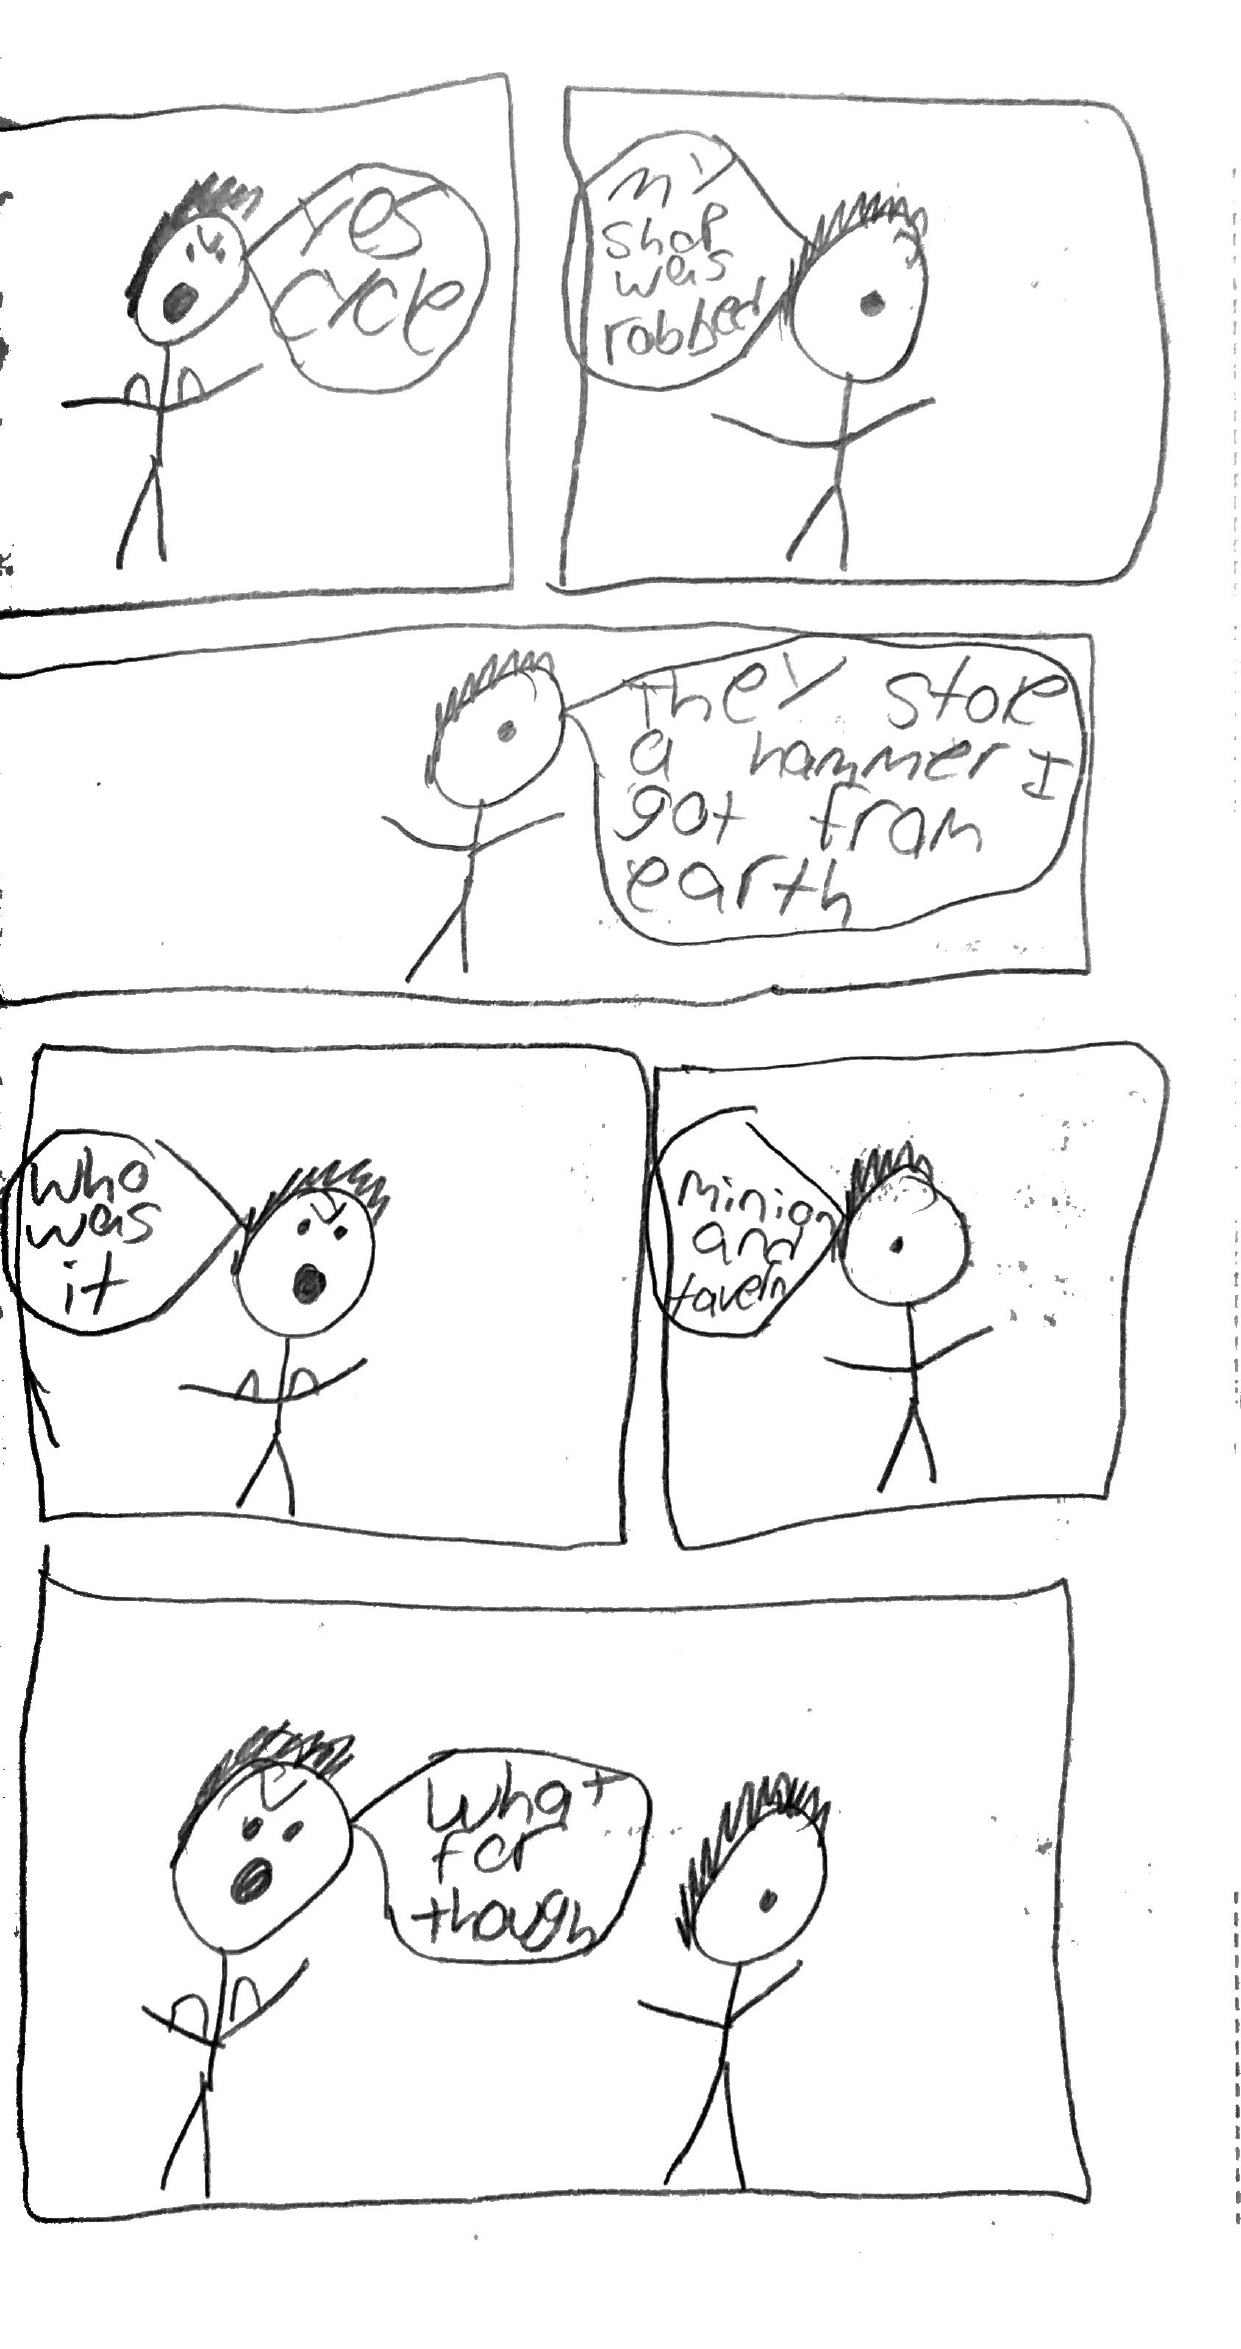 Yes
cycle
My
shop
was
robbed
They stole
a hammer I
got from
earth
Who
was
it
minion
and
tavern
What
for
though